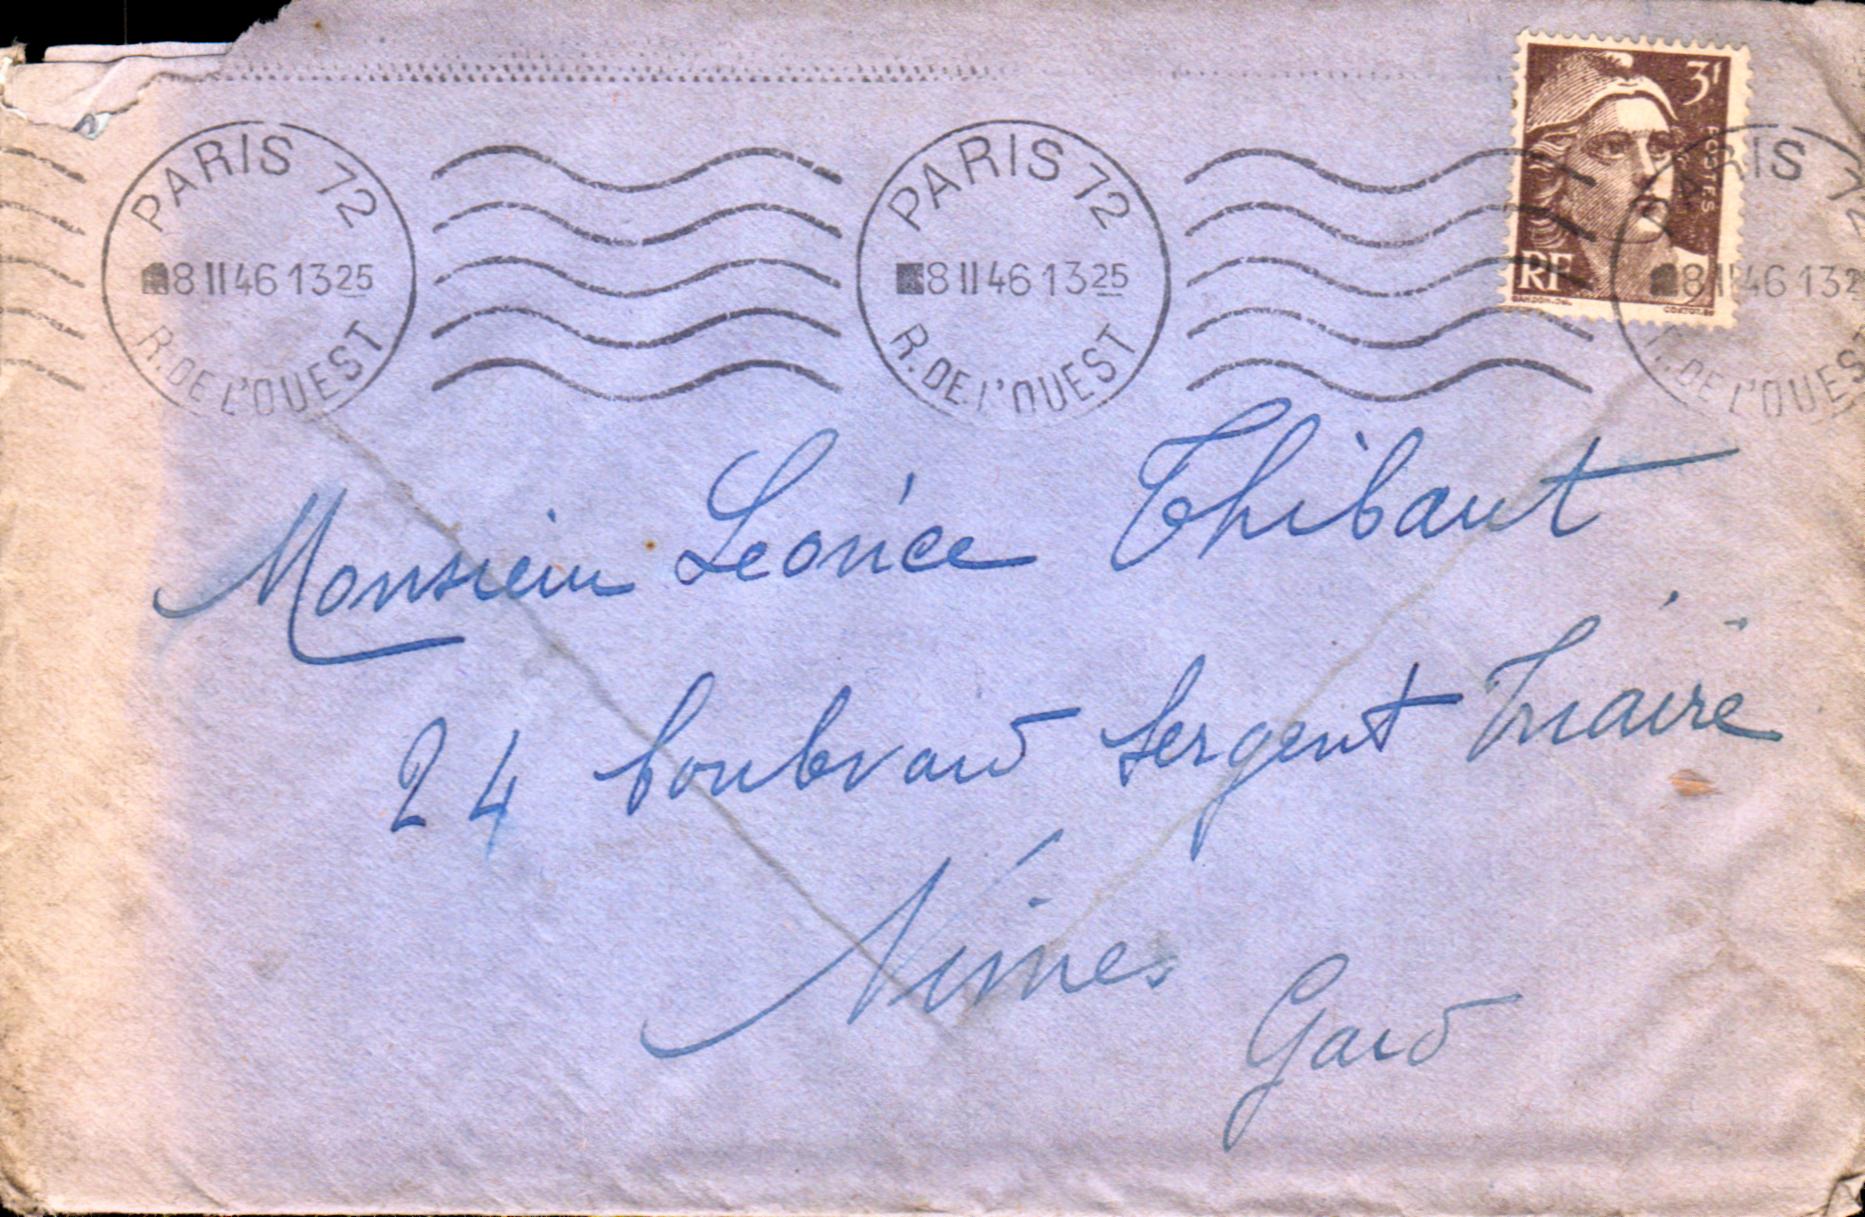 PARIS 72
8 II 46 13 25
R. DE L'OUEST
PARIS 72
8 II 46 13 25
R. DE L'OUEST
3f
POSTES
RF
GANDON-DEL.
IS 72
8 II 46 13 2
R. DE L'OUEST
Monsieur Léonce Thibaut
24 boulevard Sergent Triaire
Nimes
Gard